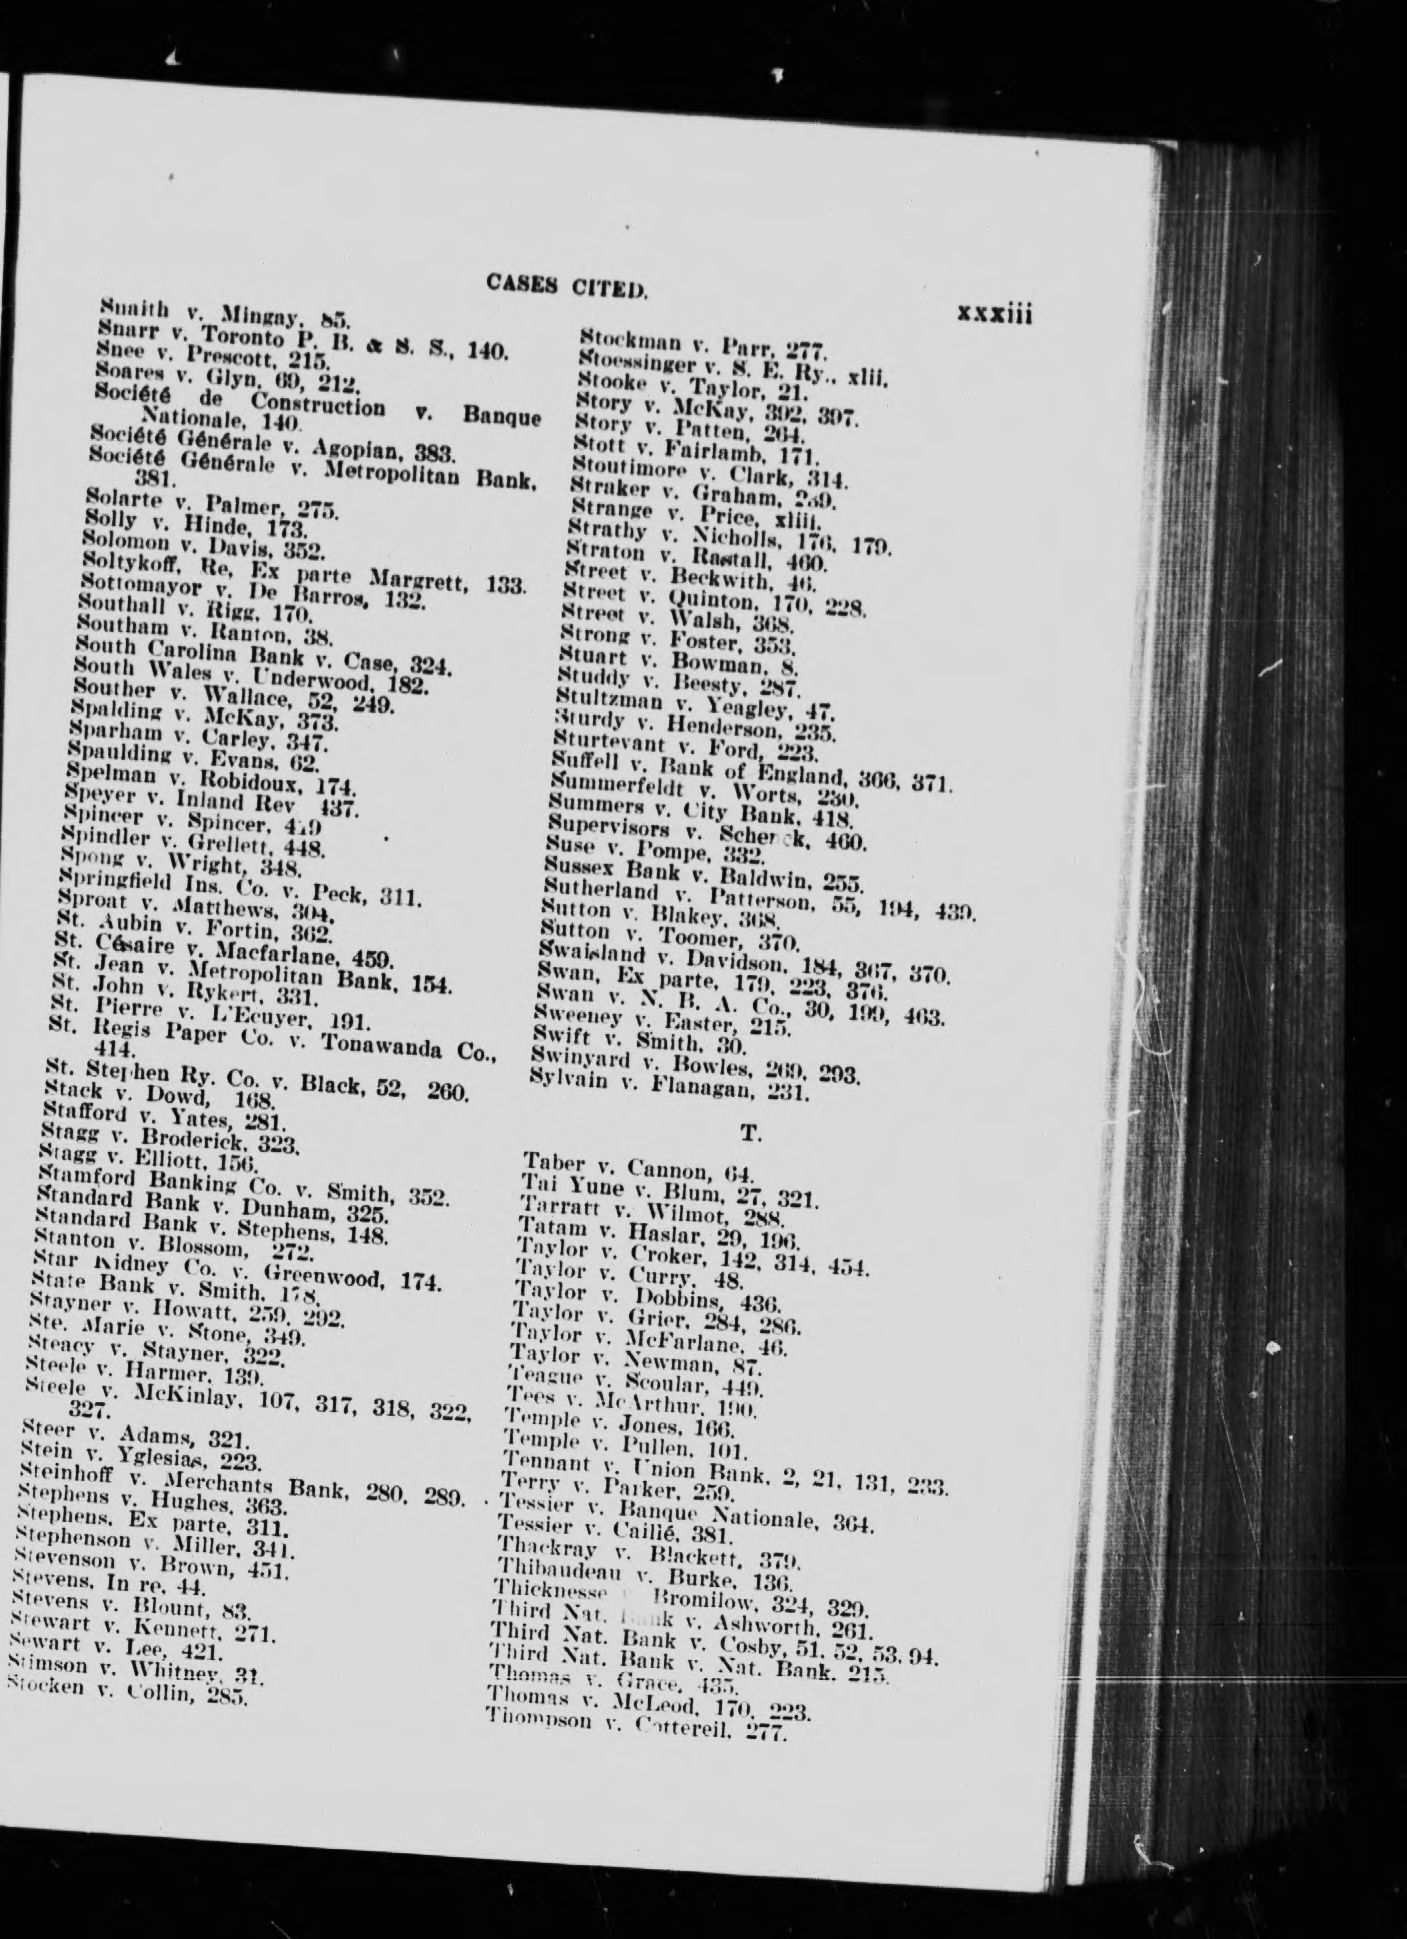 CASES CITED.
xxxiii
Snaith v. Mingay, 85.
Snarr v. Toronto P. B. & S. S., 140.
Snee v. Prescott, 215.
Soares v. Glyn, 69, 212.
Société de Construction v. Banque
Nationale, 140.
Société Générale v. Agopian, 383.
Société Générale v. Metropolitan Bank,
381.
Solarte v. Palmer, 275.
Solly v. Hinde, 173.
Solomon v. Davis, 352.
Soltykoff, Re, Ex parte Margrett, 133.
Sottomayor v. De Barros, 132.
Southall v. Rigg, 170.
Southam v. Ranton, 38.
South Carolina Bank v. Case, 324.
South Wales v. Underwood, 182.
Souther v. Wallace, 52, 249.
Spalding v. McKay, 373.
Sparham v. Carley, 347.
Spaulding v. Evans, 62.
Spelman v. Robidoux, 174.
Speyer v. Inland Rev 437.
Spincer v. Spincer,
Spindler v. Grellett, 448.
Spong v. Wright, 348.
Springfield Ins. Co. v. Peck, 311.
Sproat v. Matthews, 304.
St. Aubin v. Fortin, 362.
St. Césaire v. Macfarlane, 459.
St. Jean v. Metropolitan Bank, 154.
St. John v. Rykert, 331.
St. Pierre v. L'Ecuyer, 191.
St. Regis Paper Co. v. Tonawanda Co.,
414.
St. Stephen Ry. Co. v. Black, 52, 260.
Stack v. Dowd, 168.
Stafford v. Yates, 281.
Stagg v. Broderick, 323.
Stagg v. Elliott, 156.
Stamford Banking Co. v. Smith, 352.
Standard Bank v. Dunham, 325.
Standard Bank v. Stephens, 148.
Stanton v. Blossom, 272.
Star Kidney Co. v. Greenwood, 174.
State Bank v. Smith, 178.
Stayner v. Howatt, 259, 292.
Ste. Marie v. Stone, 349.
Steacy v. Stayner, 322.
Steele v. Harmer, 139.
Steele v. McKinlay, 107, 317, 318, 322,
327.
Steer v. Adams, 321.
Stein v. Yglesias, 223.
Steinhoff v. Merchants Bank, 280, 289.
Stephens v. Hughes, 363.
Stephens, Ex parte, 311.
Stephenson v. Miller, 341.
Stevenson v. Brown, 451.
Stevens, In re, 44.
Stevens v. Blount, 83.
Stewart v. Kennett, 271.
Sewart v. Lee, 421.
Stimson v. Whitney, 31.
Stocken v. Collin, 285.
Stockman v. Parr, 277.
Stoessinger v. S. E. Ry., xlii.
Stooke v. Taylor, 21.
Story v. McKay, 392, 397.
Story v. Patten, 264.
Stott v. Fairlamb, 171.
Stoutimore v. Clark, 314.
Straker v. Graham,
Strange v. Price, xliii.
Strathy v. Nicholls, 176, 179.
Straton v. Rastall, 460.
Street v. Beckwith, 46.
Street v. Quinton, 170, 228.
Street v. Walsh, 368.
Strong v. Foster, 353.
Stuart v. Bowman, 8.
Studdy v. Beesty, 287.
Stultzman v. Yeagley, 47.
Sturdy v. Henderson, 235.
Sturtevant v. Ford, 223.
Suffell v. Bank of England, 366, 371.
Summerfeldt v. Worts, 230.
Summers v. City Bank, 418.
Supervisors v. Schenck, 460.
Suse v. Pompe, 332.
Sussex Bank v. Baldwin, 255.
Sutherland v. Patterson, 55, 194, 439.
Sutton v. Blakey, 368.
Sutton v. Toomer, 370.
Swaisland v. Davidson, 184, 367, 370.
Swan, Ex parte, 179, 223, 376.
Swan v. N. B. A. Co., 30, 199, 463.
Sweeney v. Easter, 215.
Swift v. Smith, 30.
Swinyard v. Bowles, 269, 293.
Sylvain v. Flanagan, 231.
T.
Taber v. Cannon, 64.
Tai Yune v. Blum, 27, 321.
Tarratt v. Wilmot, 288.
Tatam v. Haslar, 29, 196.
Taylor v. Croker, 142, 314, 454.
Taylor v. Curry, 48.
Taylor v. Dobbins, 436.
Taylor v. Grier, 284, 286.
Taylor v. McFarlane, 46.
Taylor v. Newman, 87.
Teague v. Scoular, 449.
Tees v. McArthur, 190.
Temple v. Jones, 166.
Temple v. Pullen, 101.
Tennant v. Union Bank, 2, 21, 131, 233.
Terry v. Parker, 259.
Tessier v. Banque Nationale, 364.
Tessier v. Caillé, 381.
Thackray v. Blackett, 379.
Thibaudeau v. Burke, 136.
Thicknesse v. Bromilow, 324, 329.
Third Nat. Bank v. Ashworth, 261.
Third Nat. Bank v. Cosby, 51, 52, 53, 94.
Third Nat. Bank v. Nat. Bank, 215.
Thomas v. Grace, 435.
Thomas v. McLeod, 170, 223.
Thompson v. Cottereil, 277.